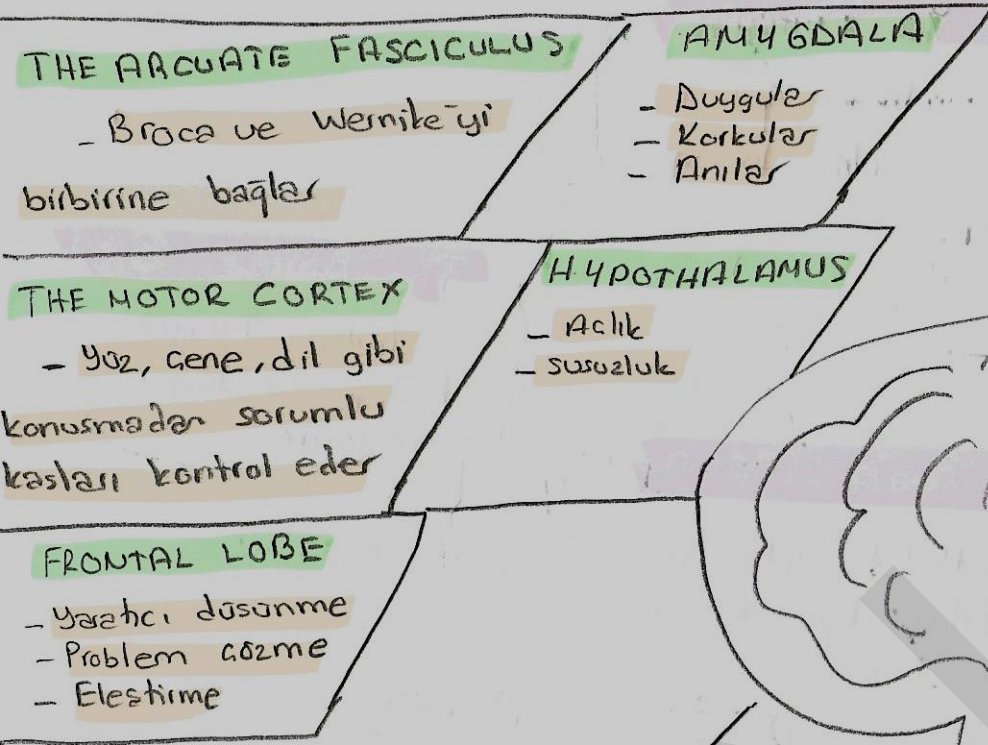 THE ARCUATE FASCICULUS
- Broca ve Wernike'yi
birbirine bağlar
AMYGDALA
- Duygular
- Korkular
- Anılar
THE MOTOR CORTEX
- Yüz, çene, dil gibi
konuşmadan sorumlu
kasları kontrol eder
HYPOTHALAMUS
- Açlık
- susuzluk
FRONTAL LOBE
- Yaratıcı düşünme
- Problem çözme
- Eleştirme